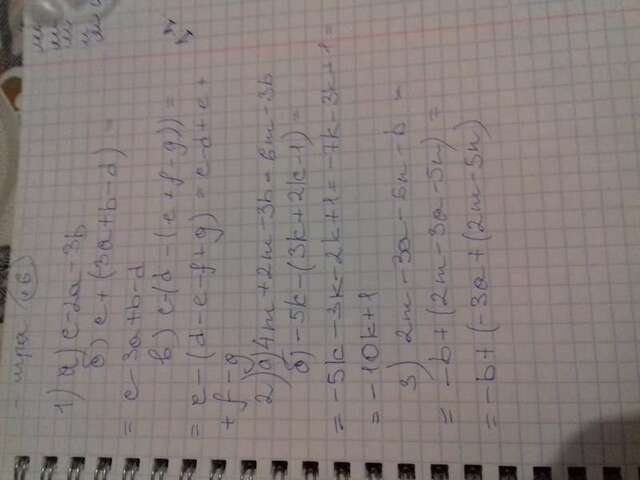 - игра +6
1) а) c - 2a - 3b
б) c + (-3a + b - d) =
= c - 3a + b - d
в) c - (d - (e + f - g)) =
= c - (d - e - f + g) = c - d + e +
+ f - g
2) а) 4m + 2m - 3b = 6m - 3b
б) -5k - (3k + 2k - 1) =
= -5k - 3k - 2k + 1 = -7k - 3k + 1 =
= -10k + 1
3) 2m - 3a - 5n - b =
= -b + (2m - 3a - 5n) =
= -b + (-3a + (2m - 5n)